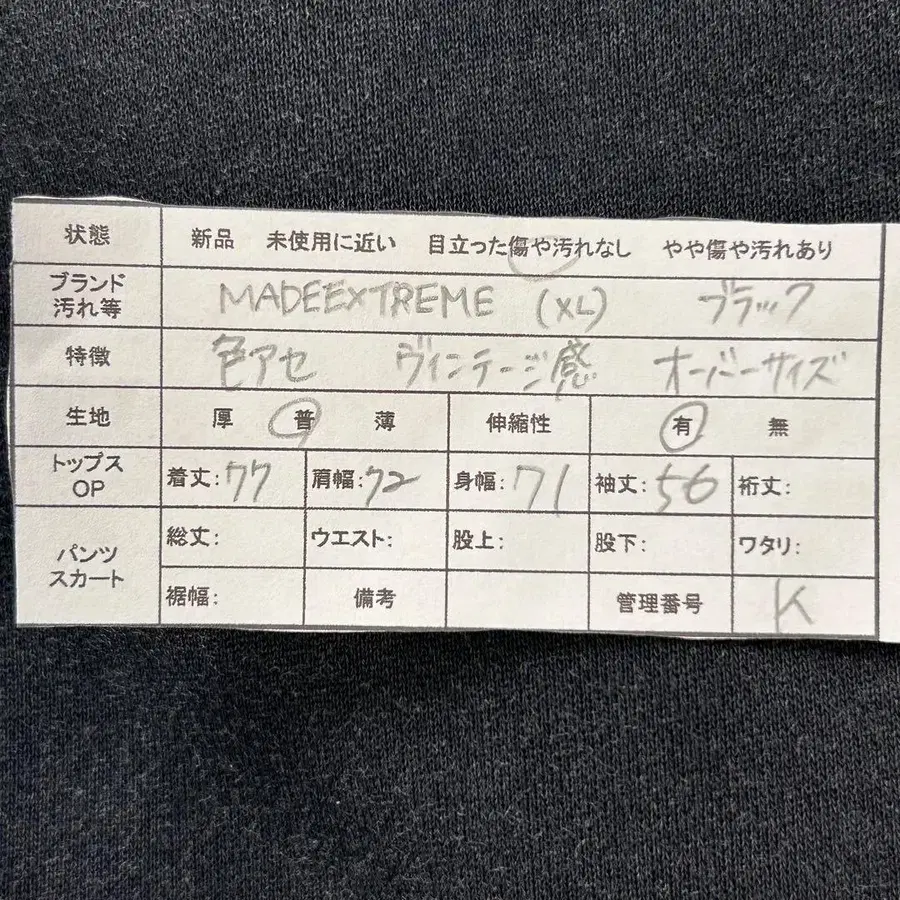 状態 新品 未使用に近い 目立った傷や汚れなし やや傷や汚れあり
ブランド
汚れ等 MADEEXTREME (XL) ブラック
特徴 色アセ ヴィンテージ感 オーバーサイズ
生地 厚 普 薄 伸縮性 有 無
トップス
OP 着丈:77 肩幅:72 身幅:71 袖丈:56 裄丈:
パンツ
スカート 総丈: ウエスト: 股上: 股下: ワタリ:
裾幅: 備考 管理番号 K